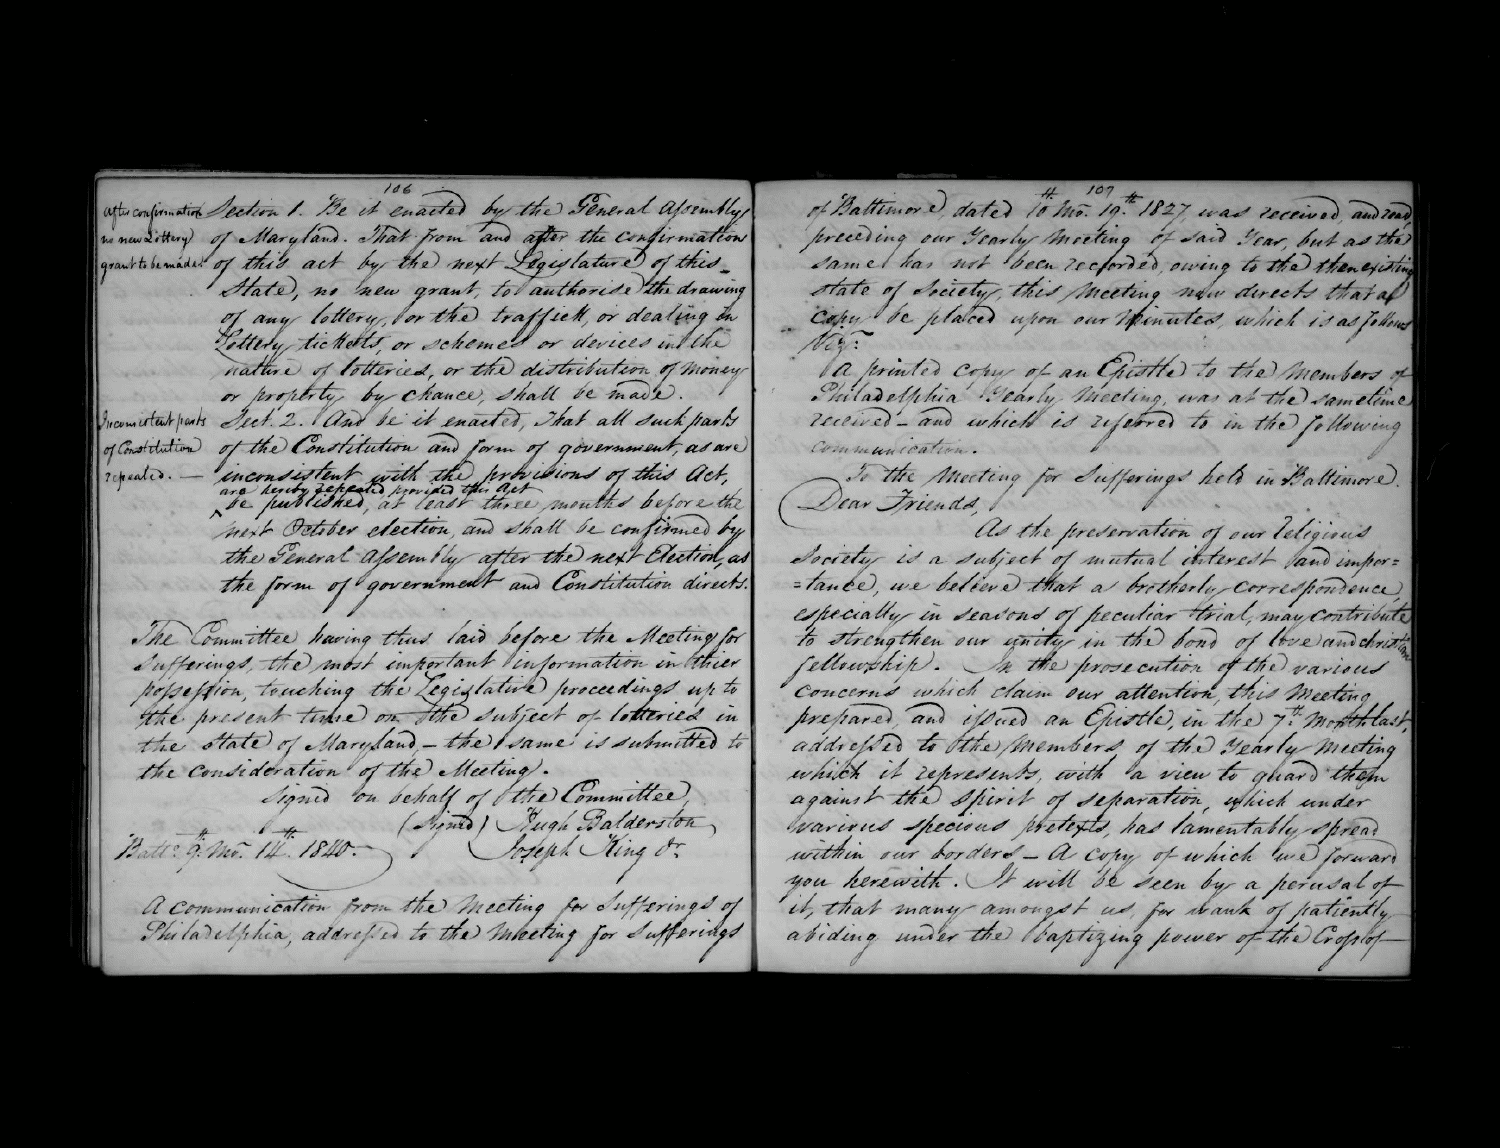 106
After confirmation
no new Lottery
grant to be made.
Section 1. Be it enacted by the General Assembly
of Maryland. That from and after the confirmation
of this act by the next Legislature of this
State, no new grant, to authorise the drawing
of any lottery, or the traffick, or dealing in
Lottery tickets, or schemes or devices in the
nature of lotteries, or the distribution of money
or property by chance, shall be made.
Inconsistent parts
of Constitution
repealed. —
Sect. 2. And be it enacted, That all such parts
of the Constitution and form of government, as are
inconsistent with the provisions of this Act,
are hereby repealed provided this Act
be published, at least three months before the
next October election, and shall be confirmed by
the General Assembly after the next Election, as
the form of government and Constitution directs.
The Committee having thus laid before the Meeting for
Sufferings, the most important information in thier
possession, touching the Legislative proceedings up to
the present time on the subject of lotteries in
the state of Maryland, – the same is submitted to
the consideration of the Meeting.
Signed on behalf of the Committee,
(Signed) Hugh Balderston
Balto. 9th Mo. 14th. 1840. Joseph King Jr.
A communication from the Meeting for Sufferings of
Philadelphia, addressed to the Meeting for Sufferings
107
of Baltimore, dated 10th Mo. 19th. 1827, was received, and read,
preceding our Yearly Meeting of said Year, but as the
same has not been recorded, owing to the then existing
state of Society, this Meeting now directs that a
copy be placed upon our Minutes, which is as follows
Viz:
A printed copy of an Epistle to the Members of
Philadelphia Yearly Meeting, was at the same time
received – and which is referred to in the following
communication.
To the Meeting for Sufferings held in Baltimore.
Dear Friends,
As the preservation of our religious
Society is a subject of mutual interest and impor=
=tance, we believe that a brotherly correspondence,
especially in seasons of peculiar trial, may contribute
to strengthen our unity in the bond of love and christian
fellowship. In the prosecution of the various
concerns which claim our attention, this Meeting
prepared, and issued an Epistle, in the 7th. Month last,
addressed to the Members of the Yearly Meeting
which it represents, with a view to guard them
against the spirit of separation, which under
various specious pretexts, has lamentably spread
within our borders – A copy of which we forward
you herewith. It will be seen by a perusal of
it, that many amongst us, for want of patiently
abiding under the baptizing power of the Cross of